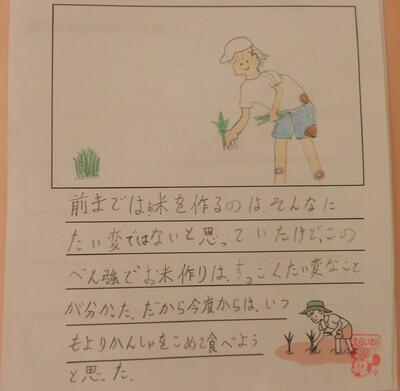 前まではお米を作るのは、そんなに
たい変ではないと思っていたけど、この
べん強でお米作りは、すっごくたい変なこと
が分かった。だから今度からは、いつ
もよりかんしゃをこめて食べよう
と思った。